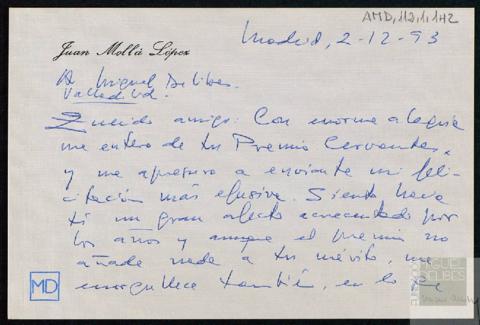 AMD,112,1,142
Juan Mollá López
Madrid, 2-12-93
A Miguel Delibes.
Valladolid.
Querido amigo: Con enorme alegría
me entero de tu Premio Cervantes,
y me apresuro a enviarte mi feli-
citación más efusiva. Siento hacia
ti un gran afecto acrecentado por
los años y aunque el premio no
añade nada a tu mérito, me
enorgullece también, en lo que
MD
FUNDACIÓN
MIGUEL
DELIBES